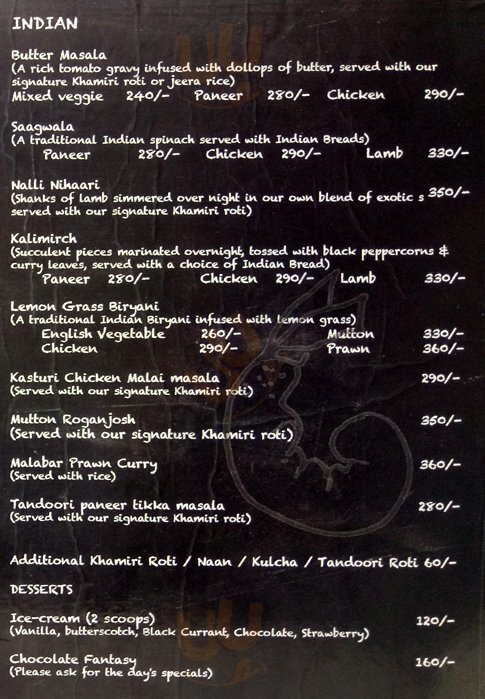 INDIAN
Butter Masala
(A rich tomato gravy infused with dollops of butter, served with our
signature Khamiri roti or jeera rice)
Mixed veggie 240/- Paneer 280/- Chicken 290/-
Saagwala
(A traditional Indian spinach served with Indian Breads)
Paneer 280/- Chicken 290/- Lamb 330/-
Nalli Nihaari
(Shanks of lamb simmered over night in our own blend of exotic s 350/-
served with our signature Khamiri roti)
Kalimirch
(Succulent pieces marinated overnight, tossed with black peppercorns &
curry leaves, served with a choice of Indian Bread)
Paneer 280/- Chicken 290/- Lamb 330/-
Lemon Grass Biryani
(A traditional Indian Biryani infused with lemon grass)
English Vegetable 260/- Mutton 330/-
Chicken 290/- Prawn 360/-
Kasturi Chicken Malai masala 290/-
(Served with our signature Khamiri roti)
Mutton Roganjosh 350/-
(Served with our signature Khamiri roti)
Malabar Prawn Curry 360/-
(Served with rice)
Tandoori paneer tikka masala 280/-
(Served with our signature Khamiri roti)
Additional Khamiri Roti / Naan / Kulcha / Tandoori Roti 60/-
DESSERTS
Ice-cream (2 scoops) 120/-
(Vanilla, butterscotch, Black Currant, Chocolate, Strawberry)
Chocolate Fantasy 160/-
(Please ask for the day's specials)